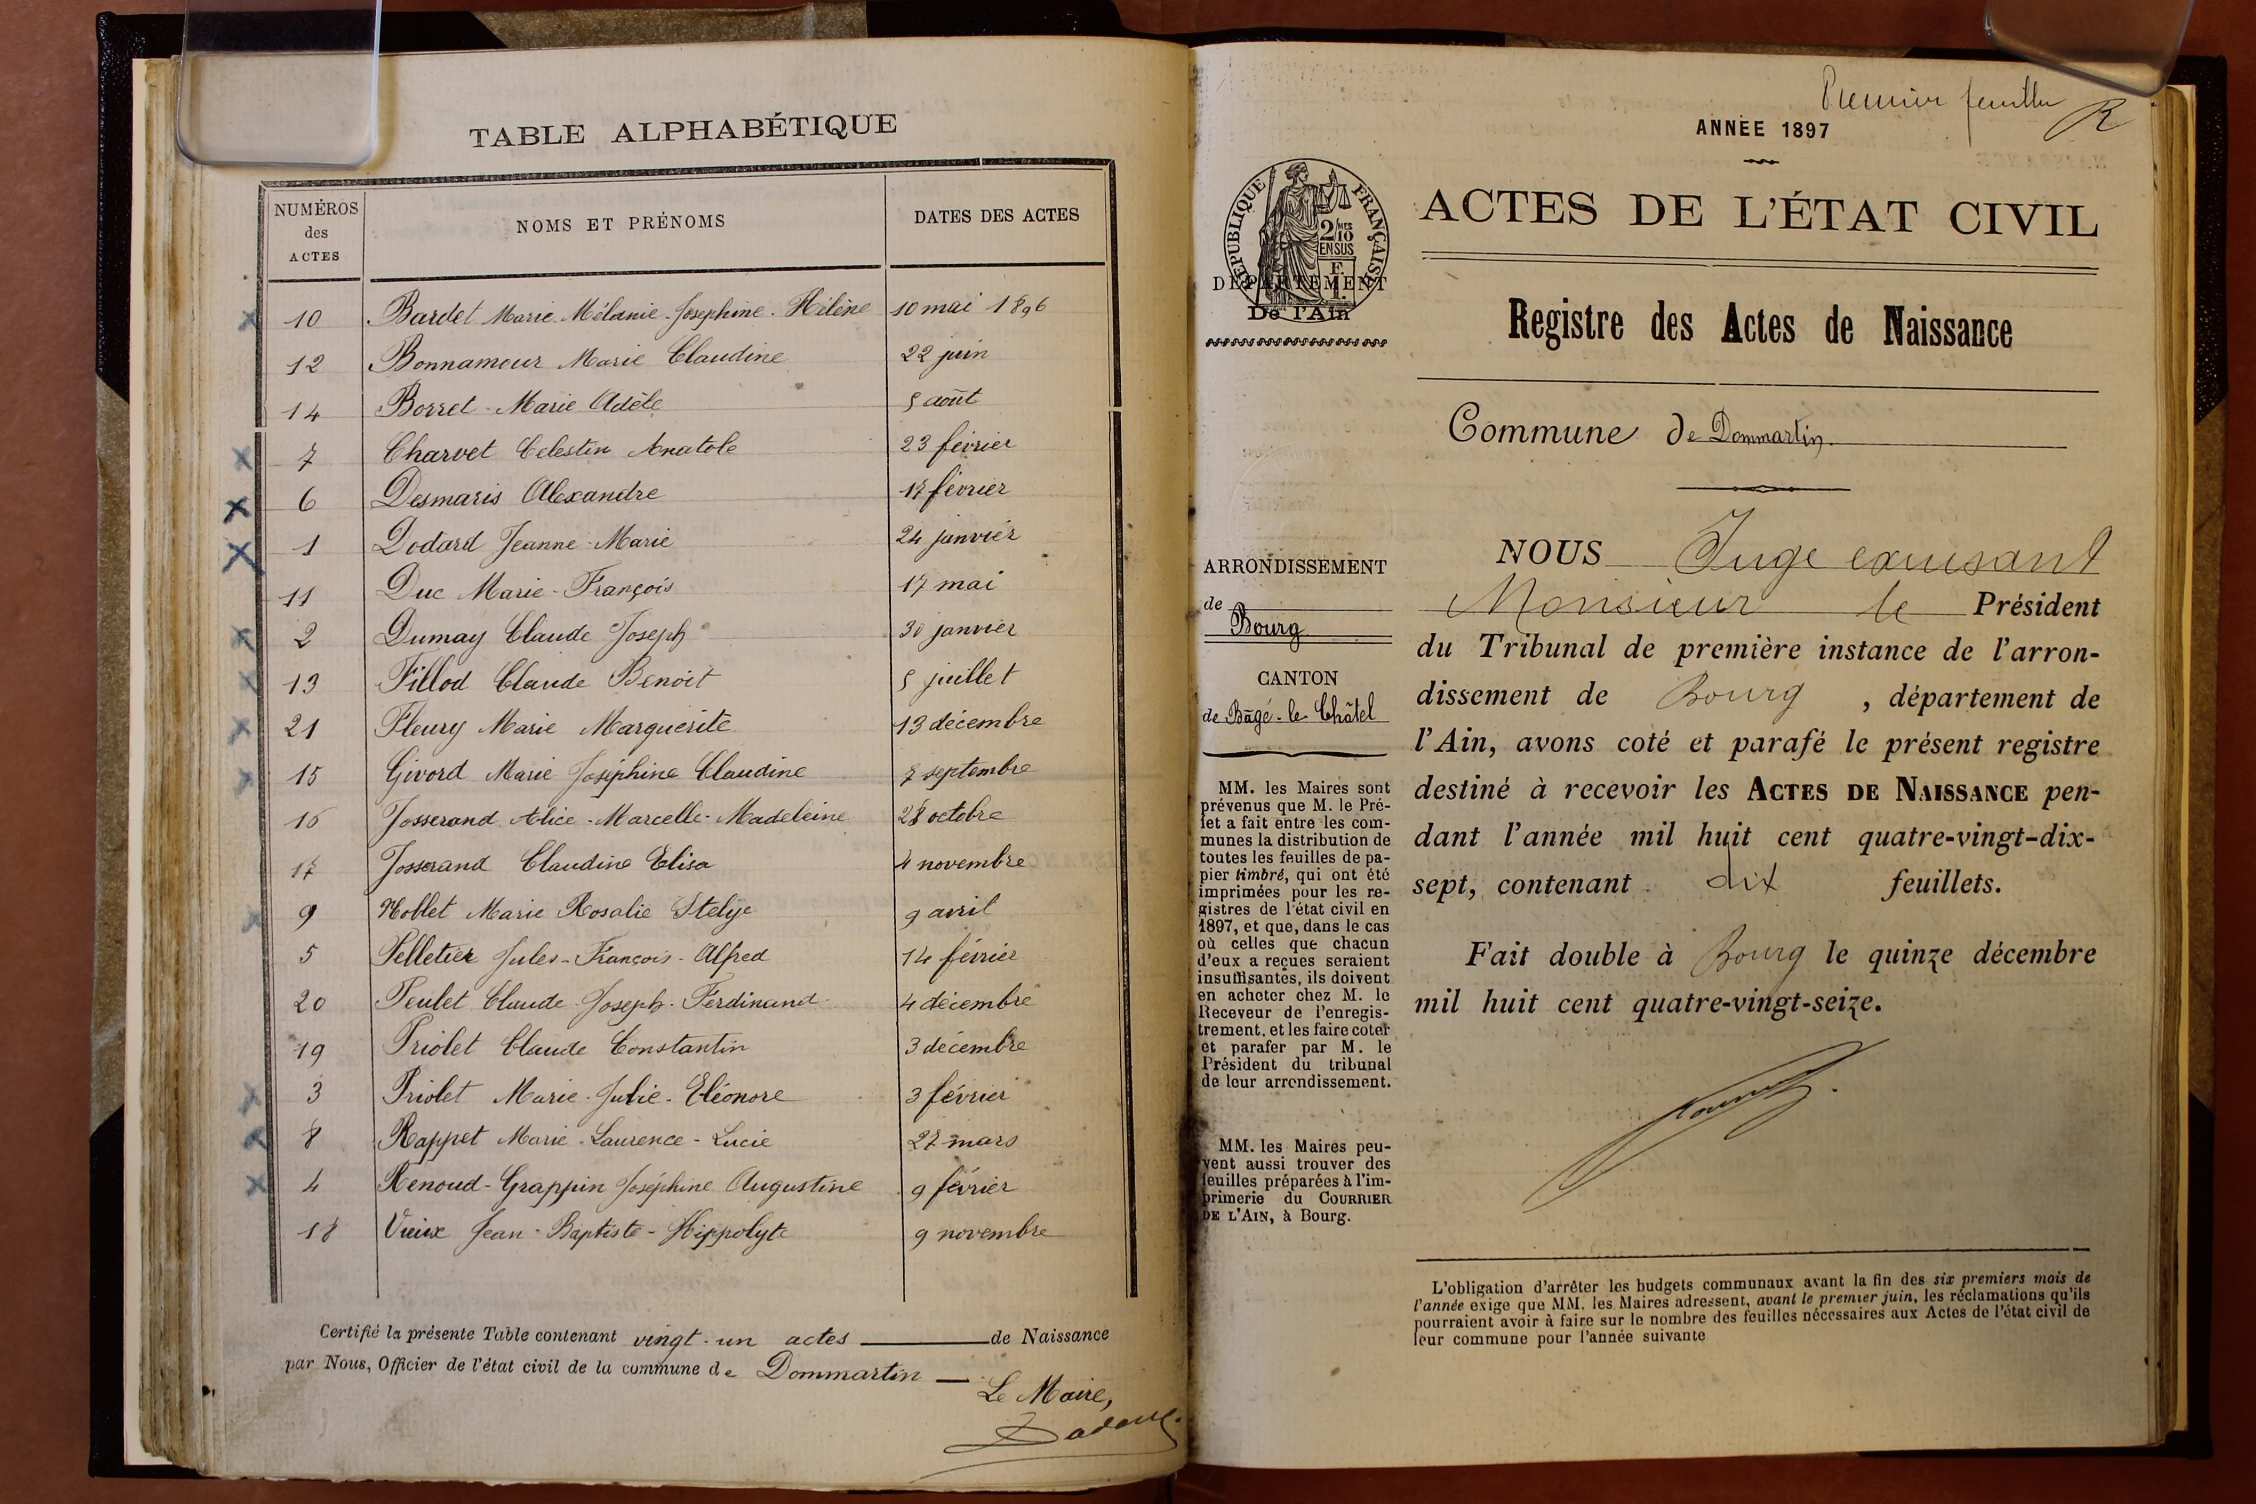 TABLE ALPHABÉTIQUE
NUMÉROS des ACTES
NOMS ET PRÉNOMS
DATES DES ACTES
10 Bardet Marie Mélanie-Joséphine-Hélène 10 mai 1896
12 Bonnamour Marie Claudine 22 juin
14 Borret Marie Adèle 5 août
7 Charvet Celestin Anatole 23 février
6 Desmaris Alexandre 17 février
1 Dodard Jeanne-Marie 24 janvier
11 Duc Marie-François 17 mai
2 Dumay Claude Joseph 30 janvier
13 Fillod Claude Benoit 5 juillet
21 Fleury Marie Marguerite 13 décembre
15 Givord Marie Joséphine Claudine 7 septembre
16 Josserand Alice-Marcelle-Madeleine 28 octobre
17 Josserand Claudine Elisa 4 novembre
9 Noblet Marie Rosalie 9 avril
5 Pelletier Jules-François-Alfred 14 février
20 Peulet Claude-Joseph-Ferdinand 4 décembre
19 Priolet Claude Constantin 3 décembre
3 Priolet Marie-Julie-Eléonore 3 février
8 Rappet Marie-Laurence-Lucie 27 mars
4 Renoud-Grappin Joséphine Augustine 9 février
18 Vieux Jean-Baptiste-Hippolyte 9 novembre
Certifié la présente Table contenant vingt-un actes de Naissance
par Nous, Officier de l'état civil de la commune de Dommartin
Le Maire,
Premier feuillet
R
ANNÉE 1897
RÉPUBLIQUE FRANÇAISE
2 MES
10
EN SUS
F.
1
DÉPARTEMENT
De l'Ain
ARRONDISSEMENT
de
Bourg
CANTON
de Bâgé-le-Châtel
MM. les Maires sont
prévenus que M. le Pré-
fet a fait entre les com-
munes la distribution de
toutes les feuilles de pa-
pier timbré, qui ont été
imprimées pour les re-
gistres de l'état civil en
1897, et que, dans le cas
où celles que chacun
d'eux a reçues seraient
insuffisantes, ils doivent
en acheter chez M. le
Receveur de l'enregis-
trement, et les faire coter
et parafer par M. le
Président du tribunal
de leur arrondissement.
MM. les Maires peu-
vent aussi trouver des
feuilles préparées à l'im-
primerie du COURRIER
DE L'AIN, à Bourg.
ACTES DE L'ÉTAT CIVIL
Registre des Actes de Naissance
Commune de Dommartin
NOUS Juge exerçant
Monsieur le Président
du Tribunal de première instance de l'arron-
dissement de Bourg, département de
l'Ain, avons coté et parafé le présent registre
destiné à recevoir les ACTES DE NAISSANCE pen-
dant l'année mil huit cent quatre-vingt-dix-
sept, contenant dix feuillets.
Fait double à Bourg le quinze décembre
mil huit cent quatre-vingt-seize.
L'obligation d'arrêter les budgets communaux avant la fin des six premiers mois de
l'année exige que MM. les Maires adressent, avant le premier juin, les réclamations qu'ils
pourraient avoir à faire sur le nombre des feuilles nécessaires aux Actes de l'état civil de
leur commune pour l'année suivante